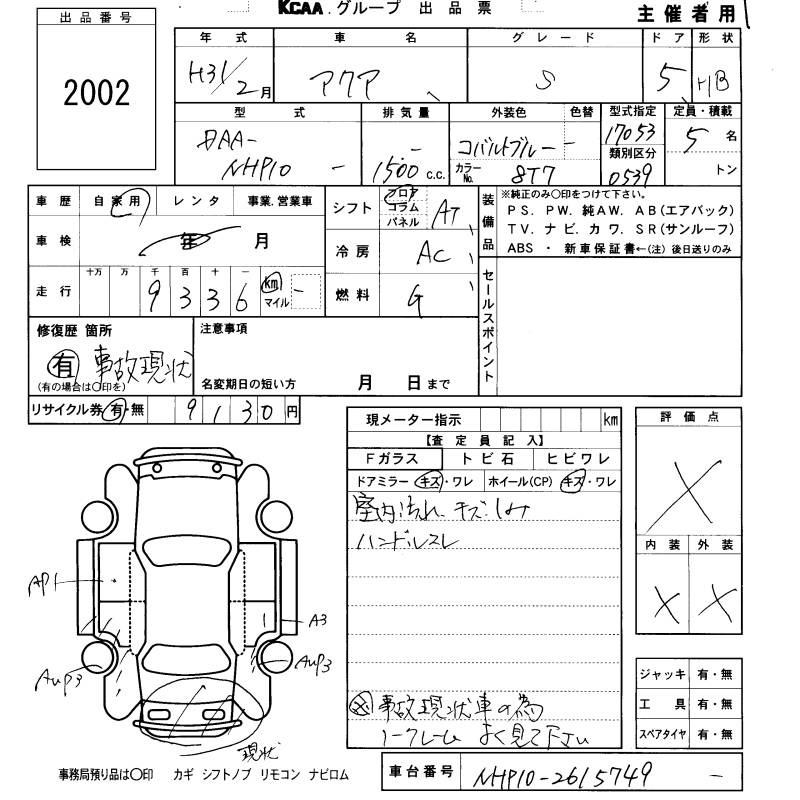 KCAA.グループ 出品票
主催者用
出品番号
2002
年式 車名 グレード ドア 形状
H31/2月 アクア S 5 HB
型式 排気量 外装色 色替 型式指定 定員・積載
DAA-NHP10 - 1500c.c. コバルトブルー - 17053 5名
カラーNo. 8T7 類別区分 0539 トン
車歴 自家用 レンタ 事業.営業車
シフト フロア コラム パネル AT
車検 年 月
冷房 AC
走行 十万 万 千 百 十 一
9 3 3 6 km マイル -
燃料 G
装備品
※純正のみ〇印をつけて下さい。
PS. PW. 純AW. AB(エアバック)
TV. ナビ. カワ. SR(サンルーフ)
ABS ・ 新車保証書←(注)後日送りのみ
セールスポイント
修復歴 箇所
有 事故現状
(有の場合は〇印を)
注意事項
名変期日の短い方 月 日まで
リサイクル券 有・無 9130円
現メーター指示 km
【査定員記入】
Fガラス トビ石 ヒビワレ
ドアミラー キズ・ワレ ホイール(CP) キズ・ワレ
室内汚れ、キズ、しみ
ハンドルスレ
事故現状車の為
ノークレーム よく見て下さい
評価点
X
内装 外装
X X
AP1
A3
AUP3
AUP3
現状
ジャッキ 有・無
工具 有・無
スペアタイヤ 有・無
事務局預り品は〇印 カギ シフトノブ リモコン ナビロム
車台番号 NHP10-2615749 -